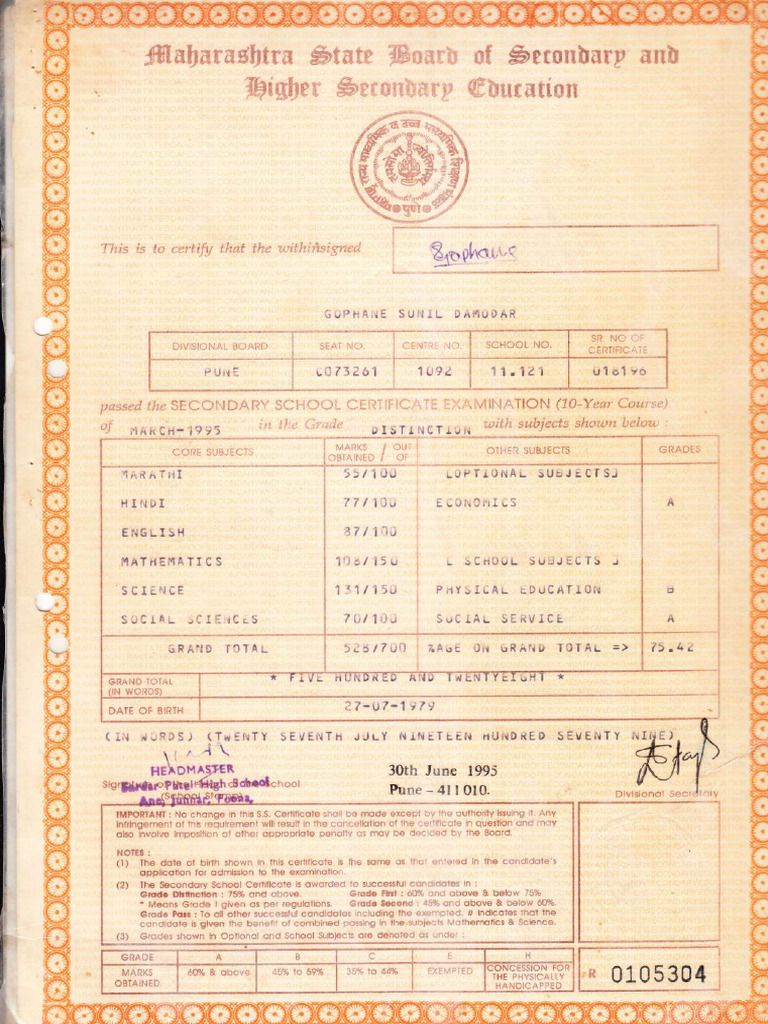 Maharashtra State Board of Secondary and
Higher Secondary Education
This is to certify that the withinsigned
Gophane
GOPHANE SUNIL DAMODAR
DIVISIONAL BOARD SEAT NO. CENTRE NO. SCHOOL NO. SR. NO OF CERTIFICATE
PUNE C073261 1092 11.121 018196
passed the SECONDARY SCHOOL CERTIFICATE EXAMINATION (10-Year Course)
of MARCH-1995 in the Grade DISTINCTION with subjects shown below :
CORE SUBJECTS MARKS OBTAINED / OUT OF OTHER SUBJECTS GRADES
MARATHI 55/100 [OPTIONAL SUBJECTS]
HINDI 77/100 ECONOMICS A
ENGLISH 87/100
MATHEMATICS 108/150 [ SCHOOL SUBJECTS ]
SCIENCE 131/150 PHYSICAL EDUCATION B
SOCIAL SCIENCES 70/100 SOCIAL SERVICE A
GRAND TOTAL 528/700 %AGE ON GRAND TOTAL => 75.42
GRAND TOTAL (IN WORDS) * FIVE HUNDRED AND TWENTYEIGHT *
DATE OF BIRTH 27-07-1979
(IN WORDS) (TWENTY SEVENTH JULY NINETEEN HUNDRED SEVENTY NINE)
HEADMASTER
Sardar Patel High School
Ane, Junnar, Poona,
30th June 1995
Pune - 411010.
Divisional Secretary
IMPORTANT : No change in this S.S. Certificate shall be made except by the authority issuing it. Any
infringement of this requirement will result in the cancellation of the certificate in question and may
also involve imposition of other appropriate penalty as may be decided by the Board.
NOTES :
(1) The date of birth shown in this certificate is the same as that entered in the candidate's
application for admission to the examination.
(2) The Secondary School Certificate is awarded to successful candidates in :
Grade Distinction : 75% and above. Grade First : 60% and above & below 75%
* Means Grade I given as per regulations. Grade Second : 45% and above & below 60%
Grade Pass : To all other successful candidates including the exempted. # Indicates that the
candidate is given the benefit of combined passing in the subjects Mathematics & Science.
(3) Grades shown in Optional and School Subjects are denoted as under :
GRADE A B C E H
MARKS OBTAINED 60% & above 45% to 59% 35% to 44% EXEMPTED CONCESSION FOR THE PHYSICALLY HANDICAPPED
R 0105304